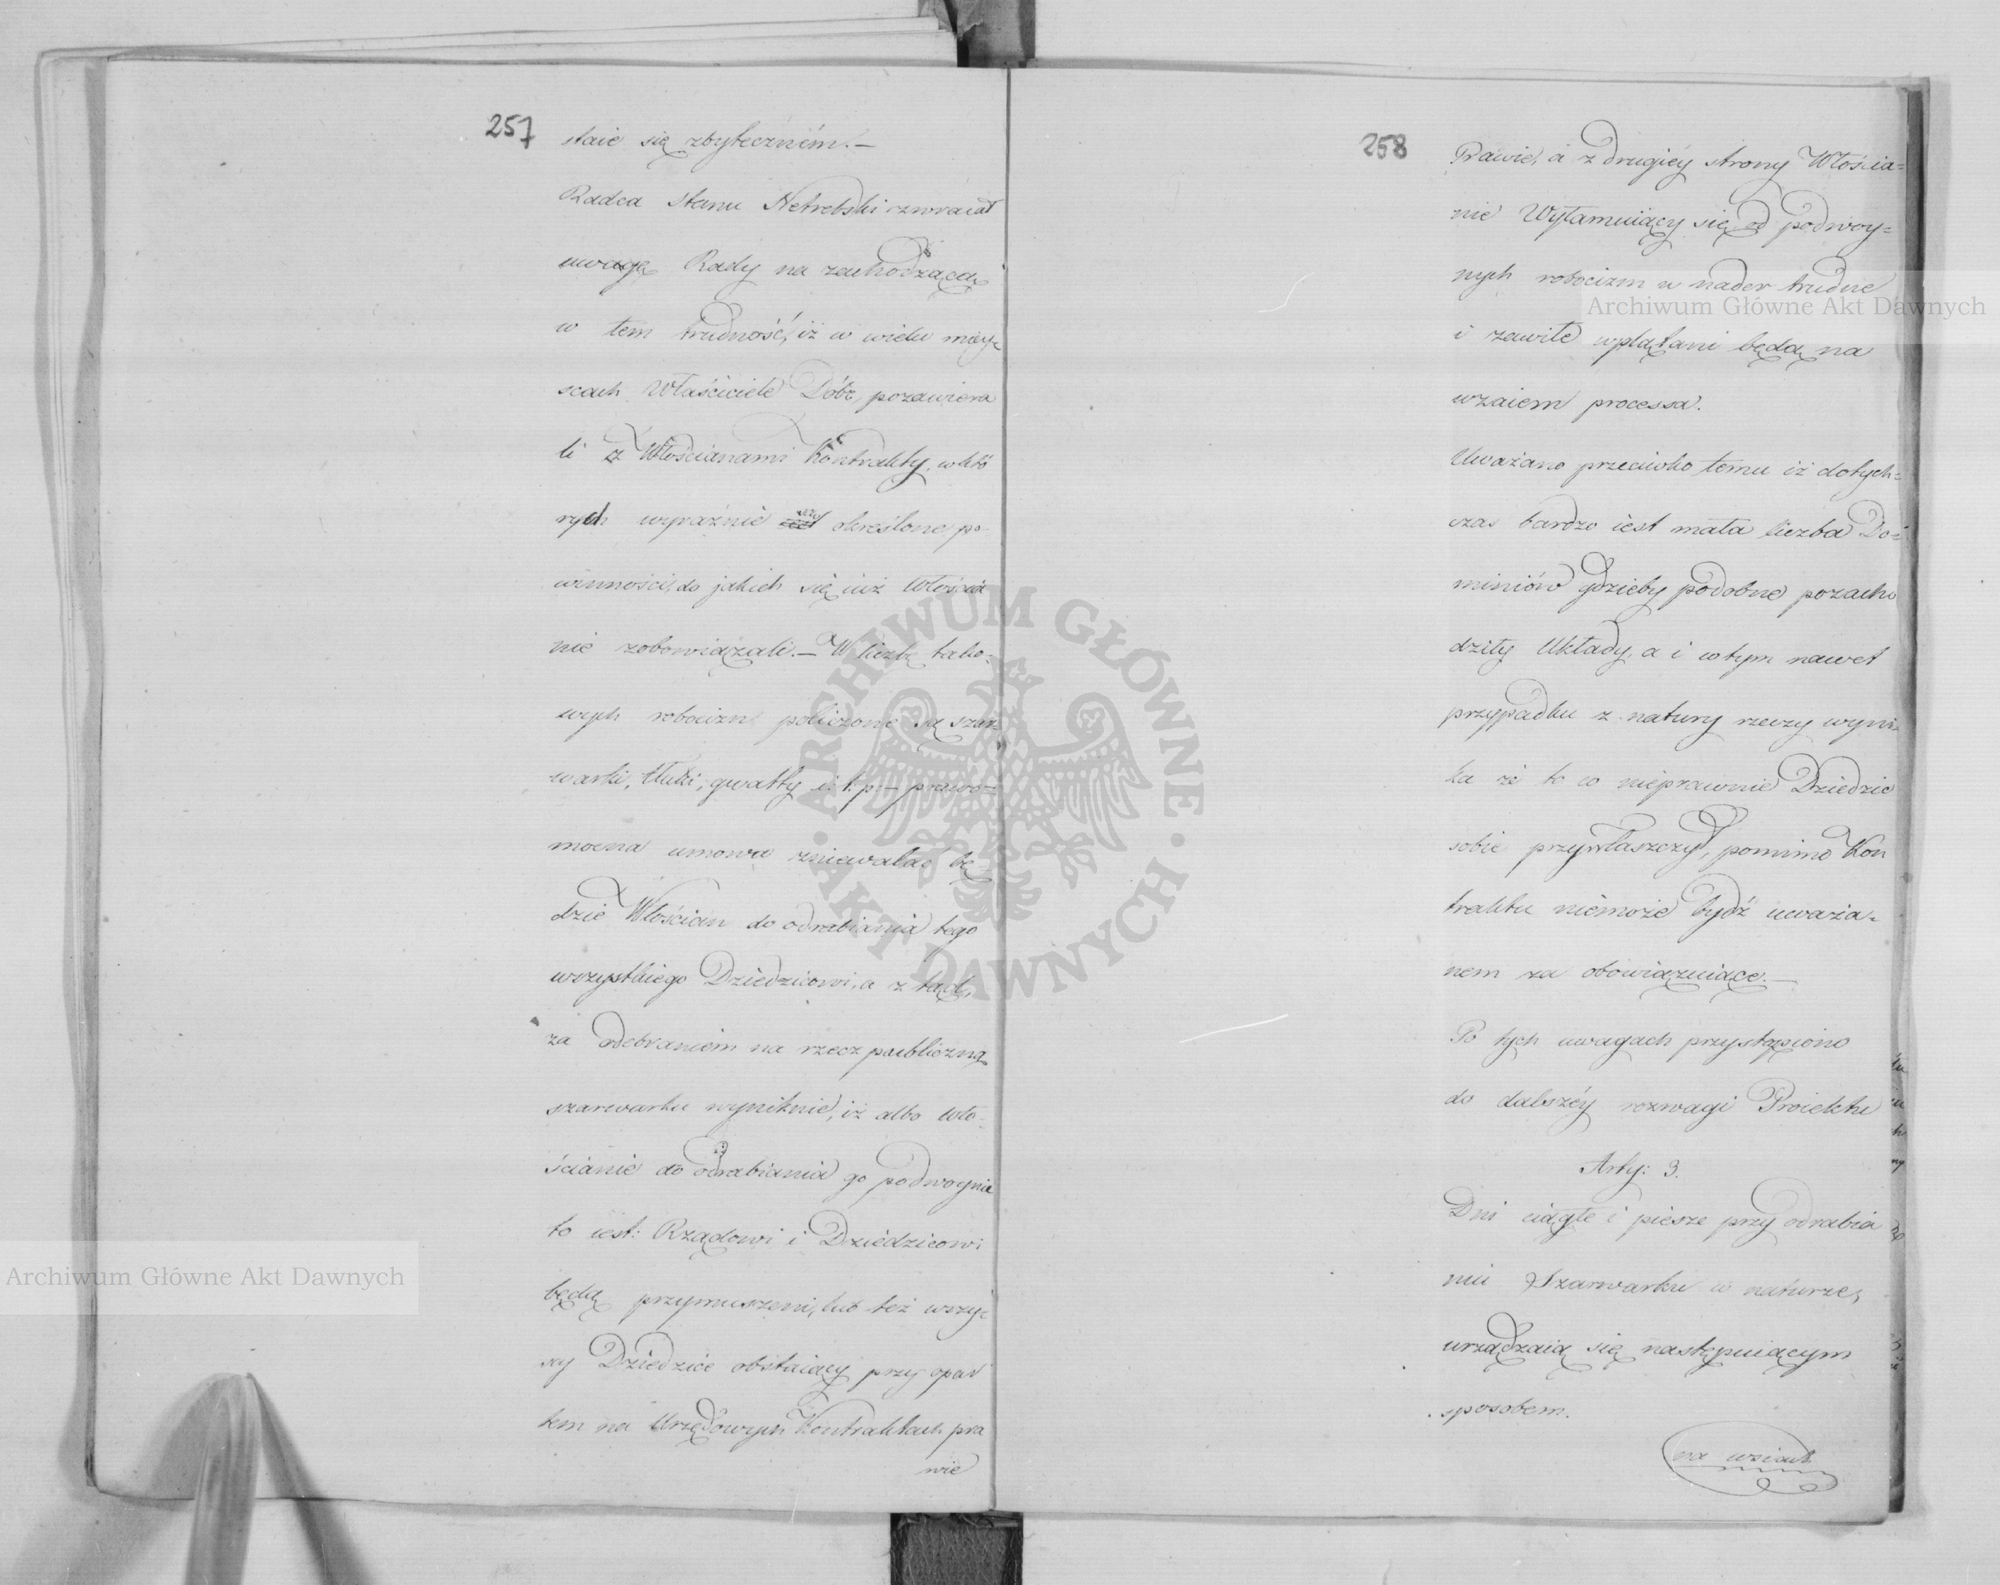 257
staie się zbyteczném.—
Radca Stanu Netrebski zwracał
uwagę Rady na zachodzącą
w tem trudność, iż w wielu miey-
scach Właściciele Dóbr, pozawiera
li z Włościanami Kontrakty, w któ
rych wyraźnie są określone po-
winności, do jakich się iuż Włościa
nie zobowiązali.— W liczbę tako-
wych robocizn policzone są szar-
warki, tłuki, gwałty i t. p.— prawo-
mocna umowa zniewalać bę
dzie Włościan do odrabiania tego
wszystkiego Dziedzicowi, a z tąd,
za odebraniem na rzecz publiczną
szarwarku wyniknie, iż albo Wło-
ścianie do odrabiania go podwoynie
to iest: Rządowi i Dziedzicowi
będą przymuszeni, lub też wszy-
scy Dziedzice obstaiący przy opar
tem na Urzędowych Kontraktach pra
wie
258
Prawie, a z drugiéy strony Włościa-
nie Wyłamuiący się od podwoy-
nych robocizn w nader trudne
i zawiłe wplątani będą na
wzaiem processa.
Uważano przeciwko temu iż dotych-
czas bardzo iest mała liczba Do-
miniów gdzieby podobne pozacho
dziły Układy, a i w tym nawet
przypadku z natury rzeczy wyni-
ka że to co nieprawnie Dziedzic
sobie przywłaszczył, pomimo Kon
traktu niemoże bydź uważa-
nem za obowiązuiące.—
Po tych uwagach przystąpiono
do dalszéy rozwagi Proiektu
Arty: 3.
Dni ciągłe i piesze przy odrabia
niu Szarwarku w naturze,
urządzaią się następuiącym
sposobem.
na wsiach
Archiwum Główne Akt Dawnych
Archiwum Główne Akt Dawnych
ARCHIWUM GŁÓWNE · AKT DAWNYCH ·